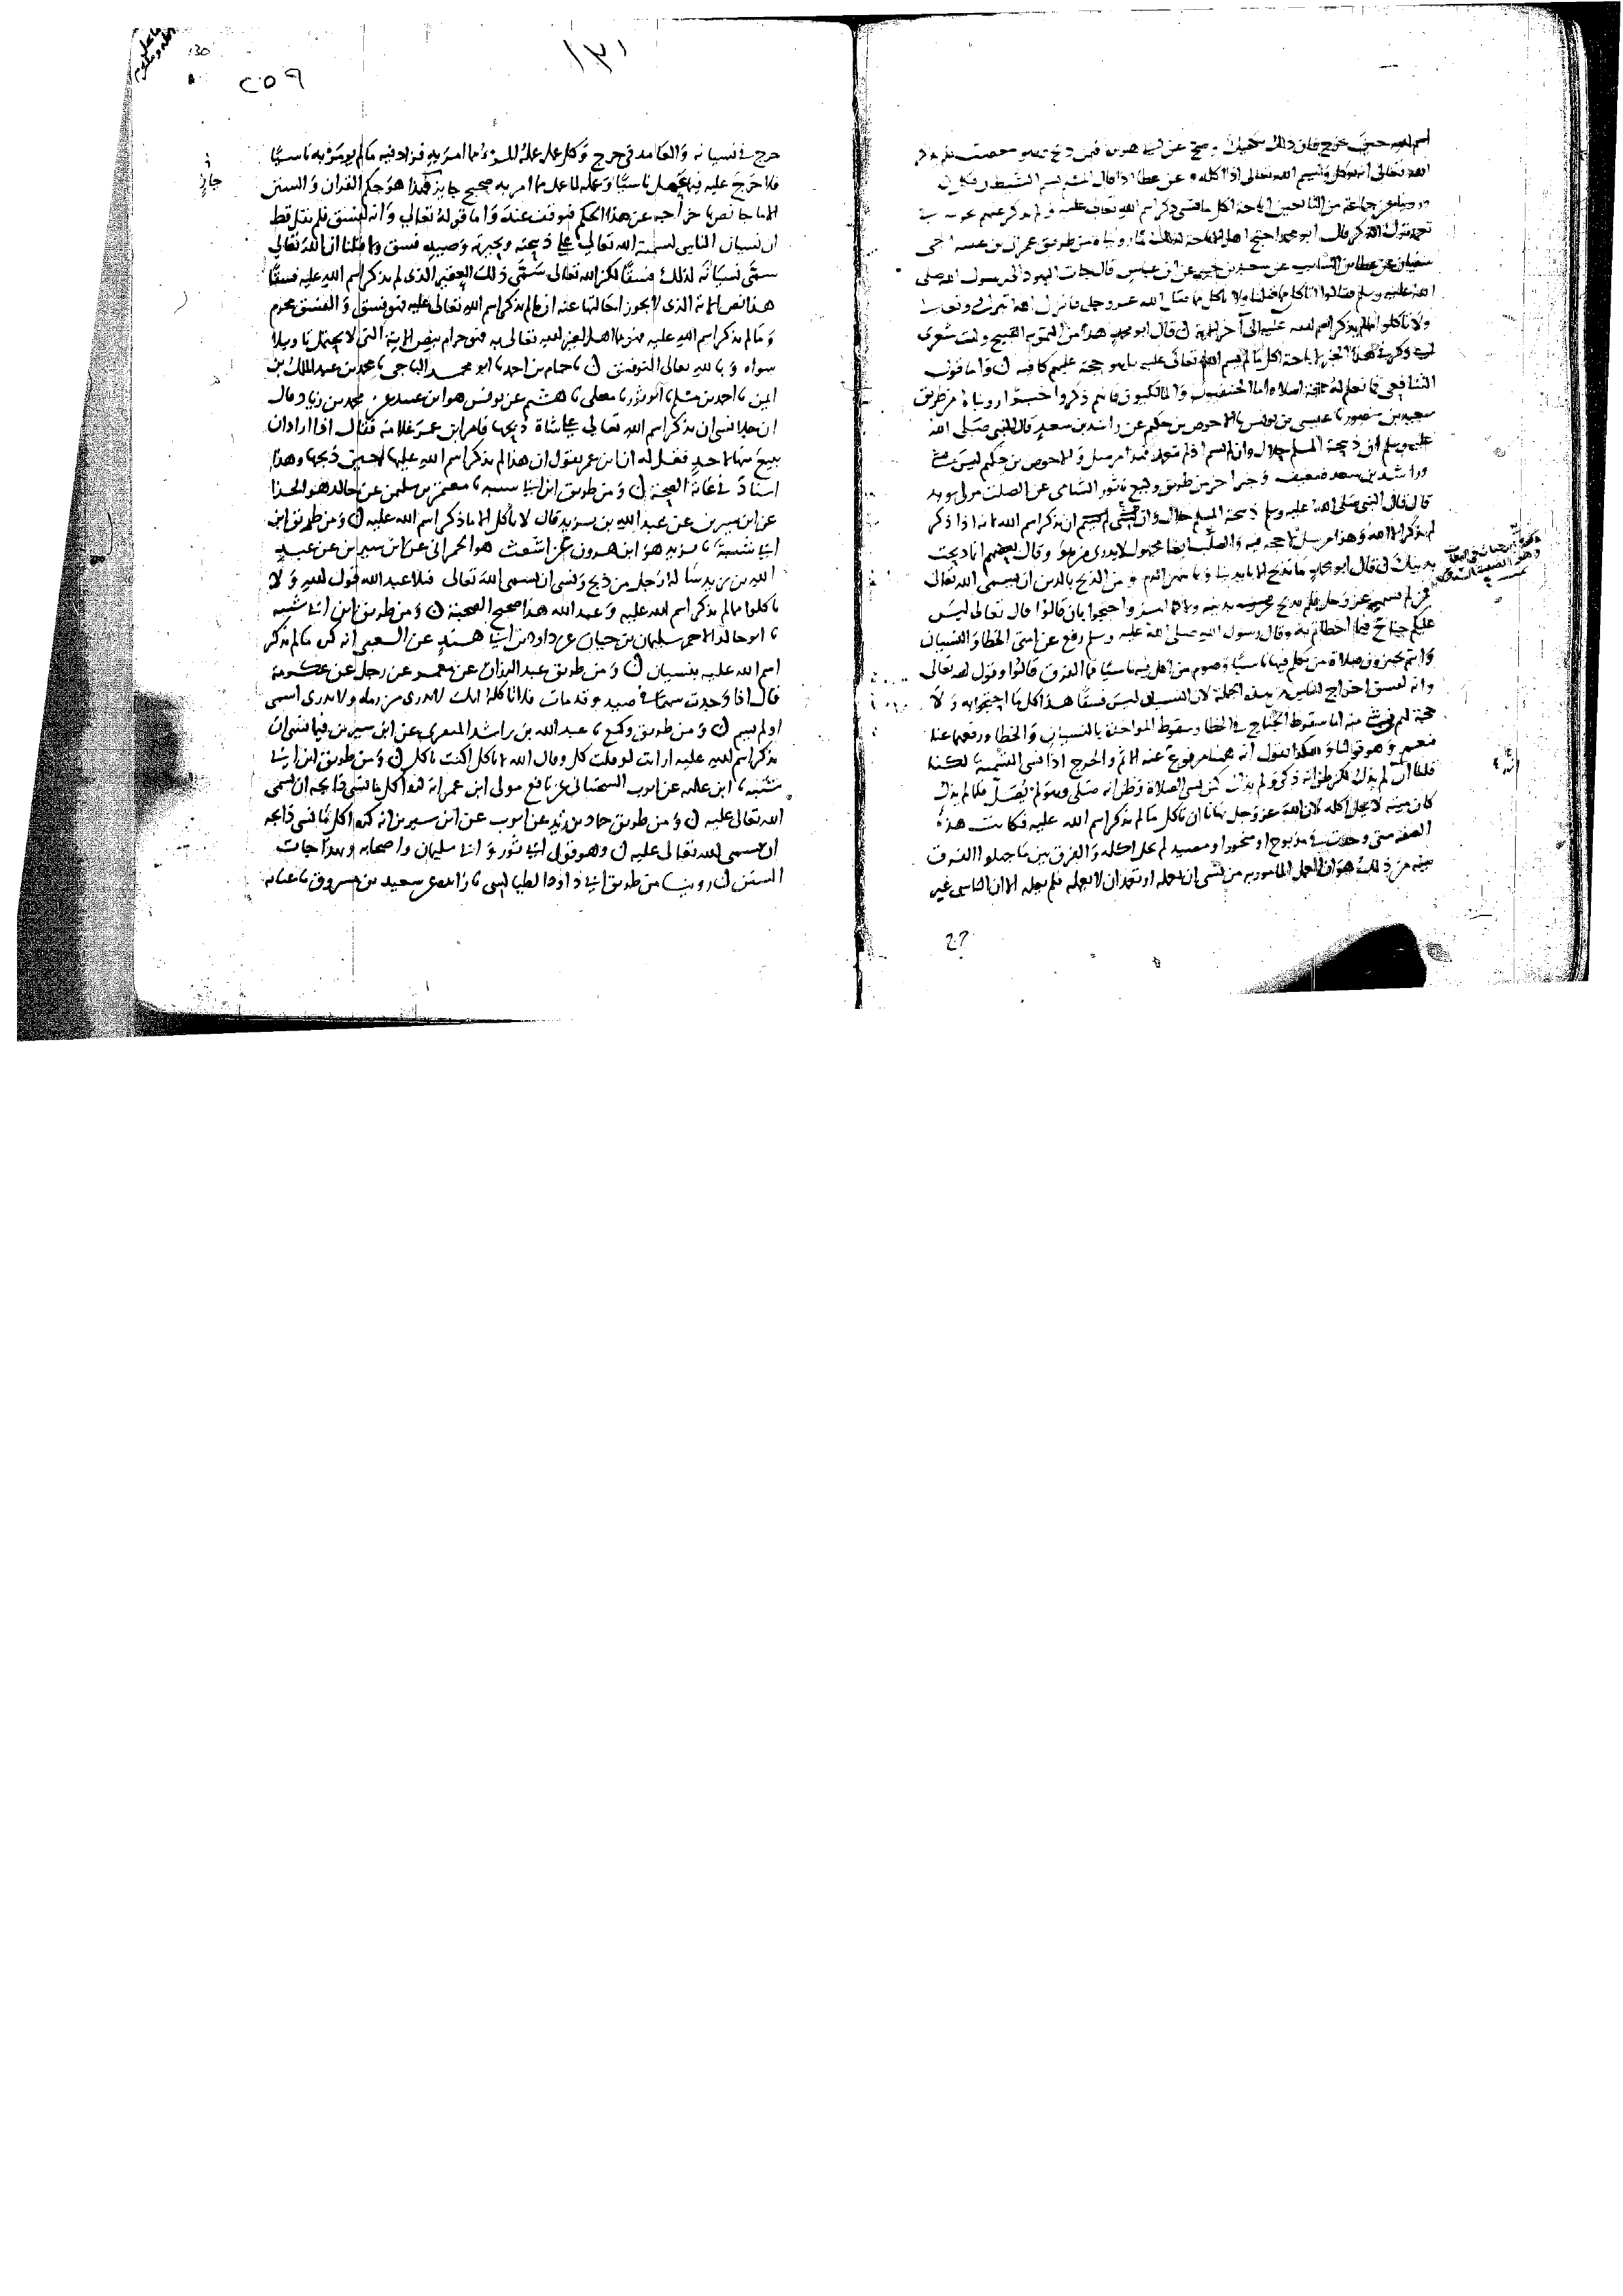 اسم الله حين خرج فان ذلك وصح عن ابي هريرة فمن ذبح فلم يذكر
الله تعالى انه يأكل ويسم الله تعالى اذا اكله وعن عطا اذا قال المسلم بسم الشيطان فكل
وروينا عن جماعة من التابعين اباحة اكل ما نسي ذكر اسم الله تعالى عليه ولم يذكر عنهم
تعمد ترك الذكر قال ابو محمد احتج اهل الاباحة لذلك بما رويناه من طريق عمران بن عيينة اخي
سفيان عن عطا بن السائب عن سعيد بن جبير عن ابن عباس قال جات اليهود الى رسول الله صلى
الله عليه وسلم فقالوا نأكل مما قتلنا ولا نأكل مما قتل الله عز وجل فانزل الله تبارك وتعالى
ولا تأكلوا مما لم يذكر اسم الله عليه الى آخر الاية قال ابو محمد هذا من التمويه القبيح وليت شعري
اي ذكر في هذا الخبر لاباحة اكل ما لم يسم الله تعالى عليه بل هو حجة عليهم كافية واما قول
الشافعي فما نعلم له حجة اصلا واما الحنفيون والمالكيون فانهم ذكروا خبرا رويناه من طريق
سعيد بن منصور نا عيسى بن يونس نا الاحوص بن حكيم عن راشد بن سعد قال النبي صلى الله
عليه وسلم ان ذبيحة المسلم حلال وان لم يسم اذا لم يتعمد هذا مرسل والاحوص بن حكيم ليس بشي
وراشد بن سعد ضعيف وخبرا اخر من طريق وكيع نا ثور الشامي عن الصلت مولى سويد
قال قال النبي صلى الله عليه وسلم ذبيحة المسلم حلال وان نسي ان يذكر اسم الله لانه اذا ذكر
لم يذكر الا الله وهذا مرسل لا حجة فيه والصلت ايضا مجهول لا يدرى من هو وقال بعضهم انا ذبحت
بدينك قال ابو محمد ما نذبح الا باديننا وبما نهر الدم ومن الذبح بالدين ان يسمى الله تعالى
فمن لم يسمه عز وجل فلم يذبح بدينه ولا كما امر واحتجوا بان قالوا قال تعالى ليس
عليكم جناح فيما اخطأتم به وقال رسول الله صلى الله عليه وسلم رفع عن امتي الخطا والنسيان
وانتم تجيزون صلاة من تكلم فيها ناسيا وصوم من اكل فيه ناسيا فما الفرق قالوا وقول الله تعالى
وانه لفسق اخراج للناس من هذه الجملة لان النسيان ليس فسقا هذا كل ما احتجوا به ولا
حجة لهم في شي منه اما سقوط الجناح في الخطا وسقوط المواخذة بالنسيان والخطا ورفعهما عنا
فنعم وهو قولنا وهكذا نقول انه هنا مرفوع عنه الاثم والحرج اذا نسي التسمية لكنا
قلنا ان لم يذك لكن ظن انه ذكى ولم يذك كمن نسي الصلاة وظن انه صلى وهو لم يصل فكما لم يذك
كان ميتة لا يحل اكله لان الله عز وجل نهانا ان نأكل ما لم يذكر اسم الله عليه فكانت هذه
الصفة متى وجدت في مذبوح او منحور او مصيد لم يحل اكله والفرق بين ما جهلوا الفرق
بينه من ذلك هو ان العمل المأمور به من نسي ان يعمله او تعمد ان لا يعمله فلم يعمله الا ان الناسي غير
٢٥٩
١٣١
حرج في نسيانه والعامد في حرج وكل عمل عمله المرء مما امر به فزاد فيه ما لم يؤمر به ناسيا
فلا حرج عليه فيما عمل ناسيا وعمله لما عمل مما امر به صحيح جايز هذا هو حكم القرآن والسنن
الا ما جا نص باخراجه عن هذا الحكم فيوقف عنده واما قوله تعالى وانه لفسق فلم نقل قط
ان نسيان الناسي لتسمية الله تعالى على ذبيحته ونحيرته وصيده فسق ولا قلنا ان الله تعالى
سمى نسيانه لذلك فسقا لكن الله تعالى سمى ذلك العقير الذي لم يذكر اسم الله عليه فسقا
هذا نص الاية الذي لا يجوز احالتها عنه ان ما لم يذكر اسم الله تعالى عليه فهو فسق والفسق محرم
وما لم يذكر اسم الله عليه فهو مما اهل لغير الله تعالى به فهو حرام بنص الاية التي لا يحتمل تاويلا
سواه وبالله تعالى التوفيق نا حمام بن احمد نا ابو محمد الباجي نا محمد بن عبد الملك بن
ايمن نا احمد بن مسلم نا ابو ثور نا معلى نا هشيم عن يونس هو ابن عبيد عن محمد بن زياد قال
ان رجلا نسي ان يذكر اسم الله تعالى على شاة ذبحها فامر ابن عمر غلامه فقال اذا اراد ان
يبيع منها لاحد فقل له ان ابن عمر يقول ان هذا لم يذكر اسم الله عليها حين ذبحها وهذا
اسناد في غاية الصحة ومن طريق ابن ابي شيبة نا معتمر بن سليمن عن خالد هو الحذا
عن ابن سيرين عن عبد الله بن يزيد قال لا تأكل الا ما ذكر اسم الله عليه ومن طريق ابن
ابي شيبة نا يزيد هو ابن هرون عن اشعث هو الحمراني عن ابن سيرين عن عبد
الله بن يزيد سأله رجل من ذبح ونسي ان يسمى الله تعالى فتلا عبد الله قول الله ولا
تاكلوا مما لم يذكر اسم الله عليه وعبد الله هذا صحيح الصحبة ومن طريق ابن ابي شيبة
نا ابو خالد الاحمر سليمان بن حيان عن داود بن ابي هند عن الشعبي انه كره ما لم يذكر
اسم الله عليه بنسيان ومن طريق عبد الرزاق عن معمر عن رجل عن عكرمة
قال اذا وجدت سهما في صيد وقد مات فلا تاكله انك لا تدري من رماه ولا تدري اسمى
او لم يسم ومن طريق وكيع نا عبد الله بن راشد المنقري عن ابن سيرين فيما نسي ان
يذكر اسم الله عليه ارايت لو قلت كل وقال الله لا تاكل اكنت تاكل ومن طريق ابن ابي
شيبة نا ابن علية عن ايوب السختياني عن نافع مولى ابن عمر انه كره اكل ما نسي ذابحه ان يسمى
الله تعالى عليه ومن طريق حماد بن زيد عن ايوب عن ابن سيرين انه كره اكل ما نسي ذابحه
ان يسمى الله تعالى عليه وهو قول ابي ثور وابي سليمان واصحابه وبهذا جات
السنن روينا من طريق ابي داود الطيالسي نا زائدة عن سعيد بن مسروق نا عباية